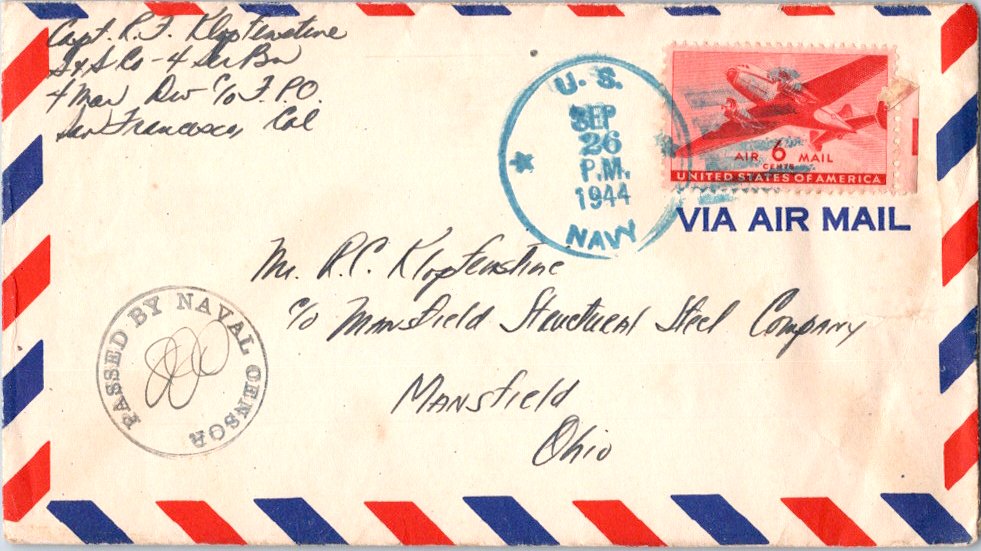 Capt. R. F. Klopfenstine
S & S Co - 4 Ser Bn
4 Mar Div c/o F.P.O.
San Francisco, Cal
U. S.
SEP
26
P.M.
1944
NAVY
AIR 6 MAIL
CENTS
UNITED STATES OF AMERICA
VIA AIR MAIL
Mr. R.C. Klopfenstine
c/o Mansfield Structural Steel Company
Mansfield
Ohio
PASSED BY NAVAL CENSOR